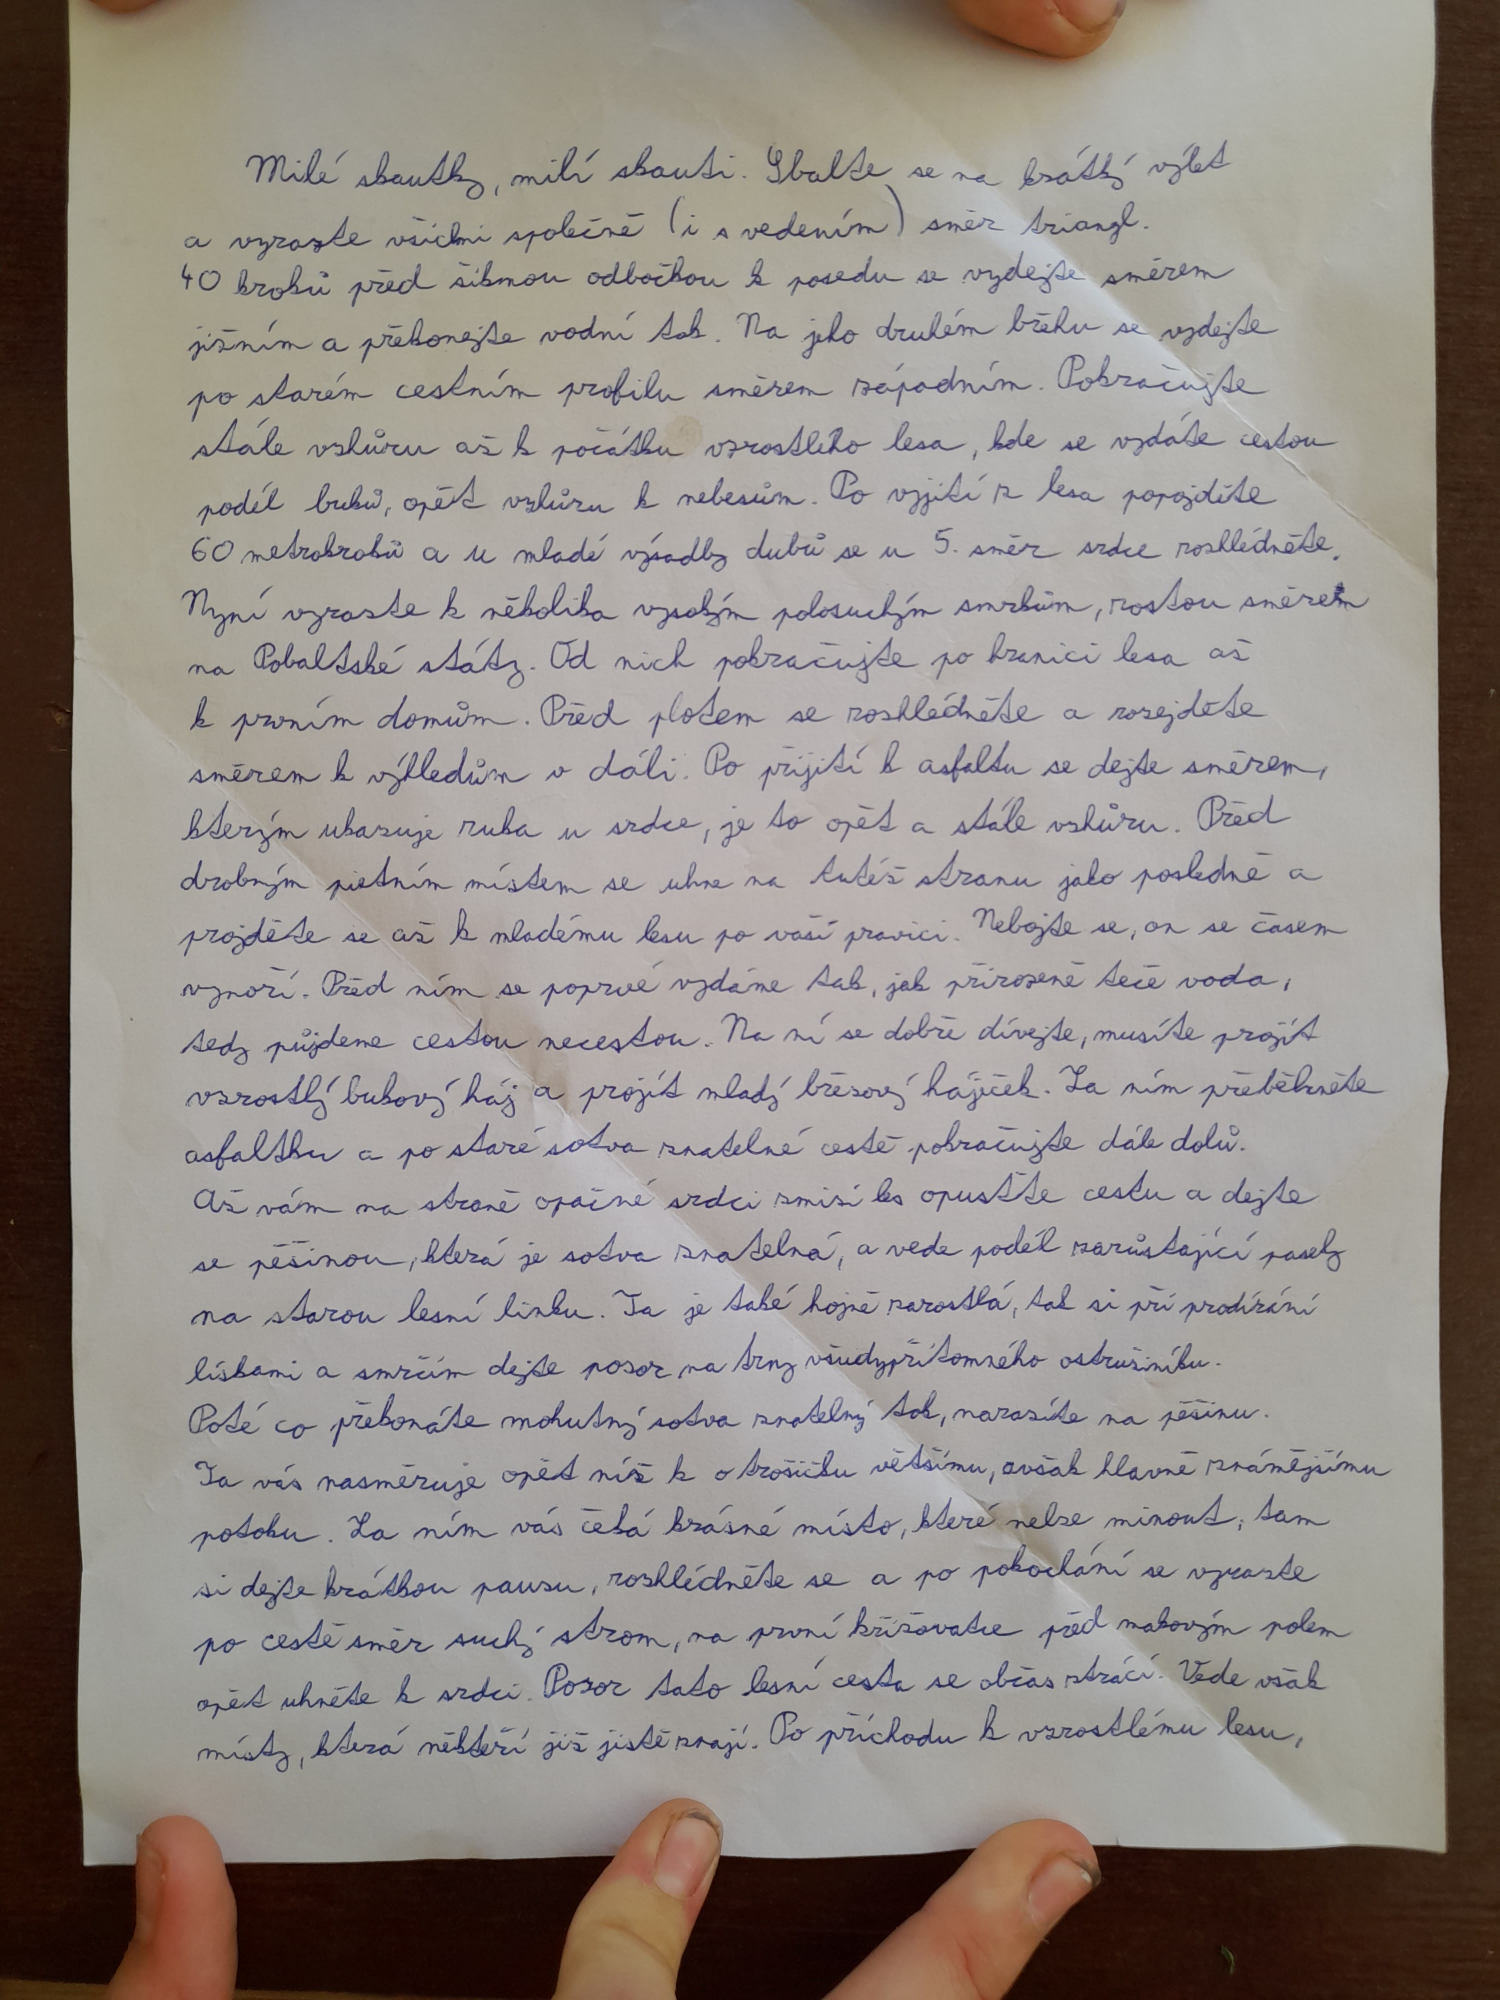 Milé skautky, milí skauti. Sbalte se na krátký výlet
a vyrazte všichni společně (i s vedením) směr triangl.
40 kroků před šikmou odbočkou k posedu se vydejte směrem
jižním a překonejte vodní tok. Na jeho druhém břehu se vydejte
po starém cestním profilu směrem západním. Pokračujte
stále vzhůru až k počátku vzrostlého lesa, kde se vydáte cestou
podél buků, opět vzhůru k nebesům. Po vyjití z lesa popojděte
60 metrokroků a u mladé výsadby dubů se u 5. směr srdce rozhlédněte.
Nyní vyrazte k několika vysokým polosuchým smrkům, rostou směrem
na Pobaltské státy. Od nich pokračujte po hranici lesa až
k prvním domům. Před plotem se rozhlédněte a rozejděte
směrem k výhledům v dáli. Po přijití k asfaltu se dejte směrem,
kterým ukazuje ruka u srdce, je to opět a stále vzhůru. Před
drobným pietním místem se uhne na tutéž stranu jako posledně a
projděte se až k mladému lesu po vaší pravici. Nebojte se, on se časem
vynoří. Před ním se poprvé vydáme tak, jak přirozeně teče voda,
tedy půjdeme cestou necestou. Na ní se dobře dívejte, musíte projít
vzrostlý bukový háj a projít mladý březový hájíček. Za ním přeběhněte
asfaltku a po staré sotva znatelné cestě pokračujte dále dolů.
Až vám na straně opačné srdci zmizí les opusťte cestu a dejte
se pěšinou, která je sotva znatelná, a vede podél zarůstající paseky
na starou lesní linku. Ta je také hojně zarostlá, tak si při prodírání
lískami a smrčím dejte pozor na trny všudypřítomného ostružiníku.
Poté co překonáte mohutný sotva znatelný tok, narazíte na pěšinu.
Ta vás nasměruje opět níž k o trošičku většímu, avšak hlavně známějšímu
potoku. Za ním vás čeká krásné místo, které nelze minout, tam
si dejte krátkou pauzu, rozhlédněte se a po pokochání se vyrazte
po cestě směr suchý strom, na první křižovatce před makovým polem
opět uhněte k srdci. Pozor tato lesní cesta se občas ztrácí. Vede však
místy, která někteří již jistě znají. Po příchodu k vzrostlému lesu,